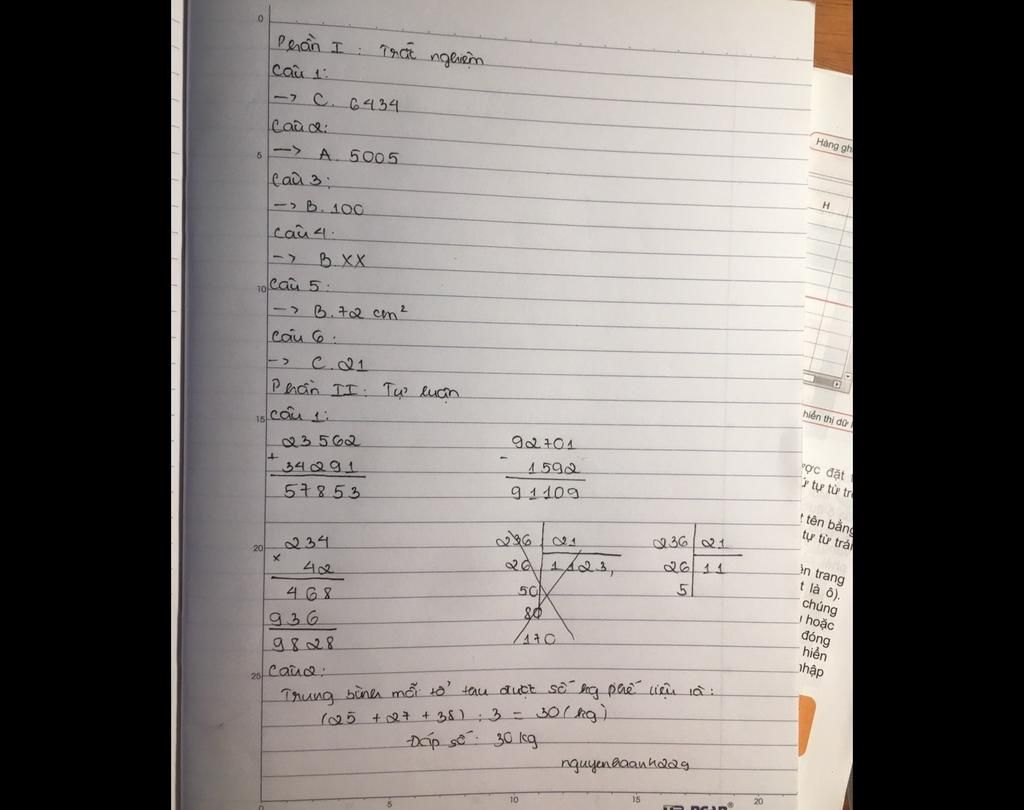 Phần I : Trắc nghiệm
Câu 1:
-> C. 6434
Câu 2:
-> A. 5005
Câu 3:
-> B. 100
Câu 4:
-> B XX
Câu 5:
-> B. 72 cm²
Câu 6:
-> C. 21
Phần II: Tự luận
Câu 1:
23562
+
34291
57853
92701
-
1592
91109
234
x
42
468
936
9828
236 21
26 1123,
50
80
170
236 21
26 11
5
Câu 2:
Trung bình mỗi tổ thu được số kg phế liệu là:
(25 + 27 + 38) : 3 = 30 (kg)
Đáp số: 30 kg
nguyenbaanh229
0
5
10
15
20
25
0 5 10 15 20
Hàng gh
H
hiển thị dữ
ược đặt
ứ tự từ tr
t tên bằng
tự từ trá
ên trang
t là ô).
chúng
hoặc
đóng
hiển
nhập